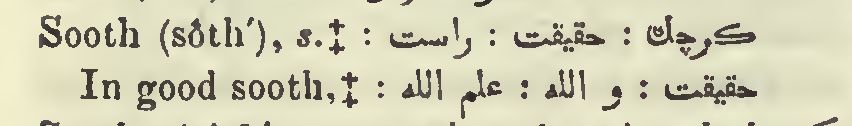 Sooth (sôth′), s.‡ : راست : حقیقت : كرچك
In good sooth,‡ : علم الله : و الله : حقیقت